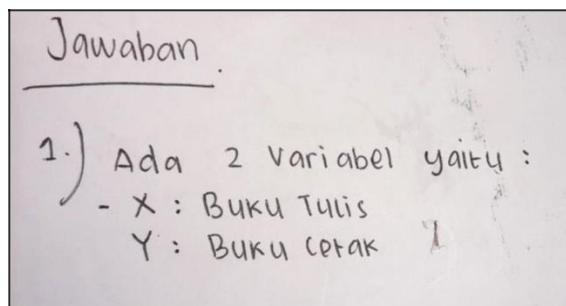 Jawaban.
1.) Ada 2 Variabel yaitu :
- X : Buku Tulis
Y : Buku Cetak